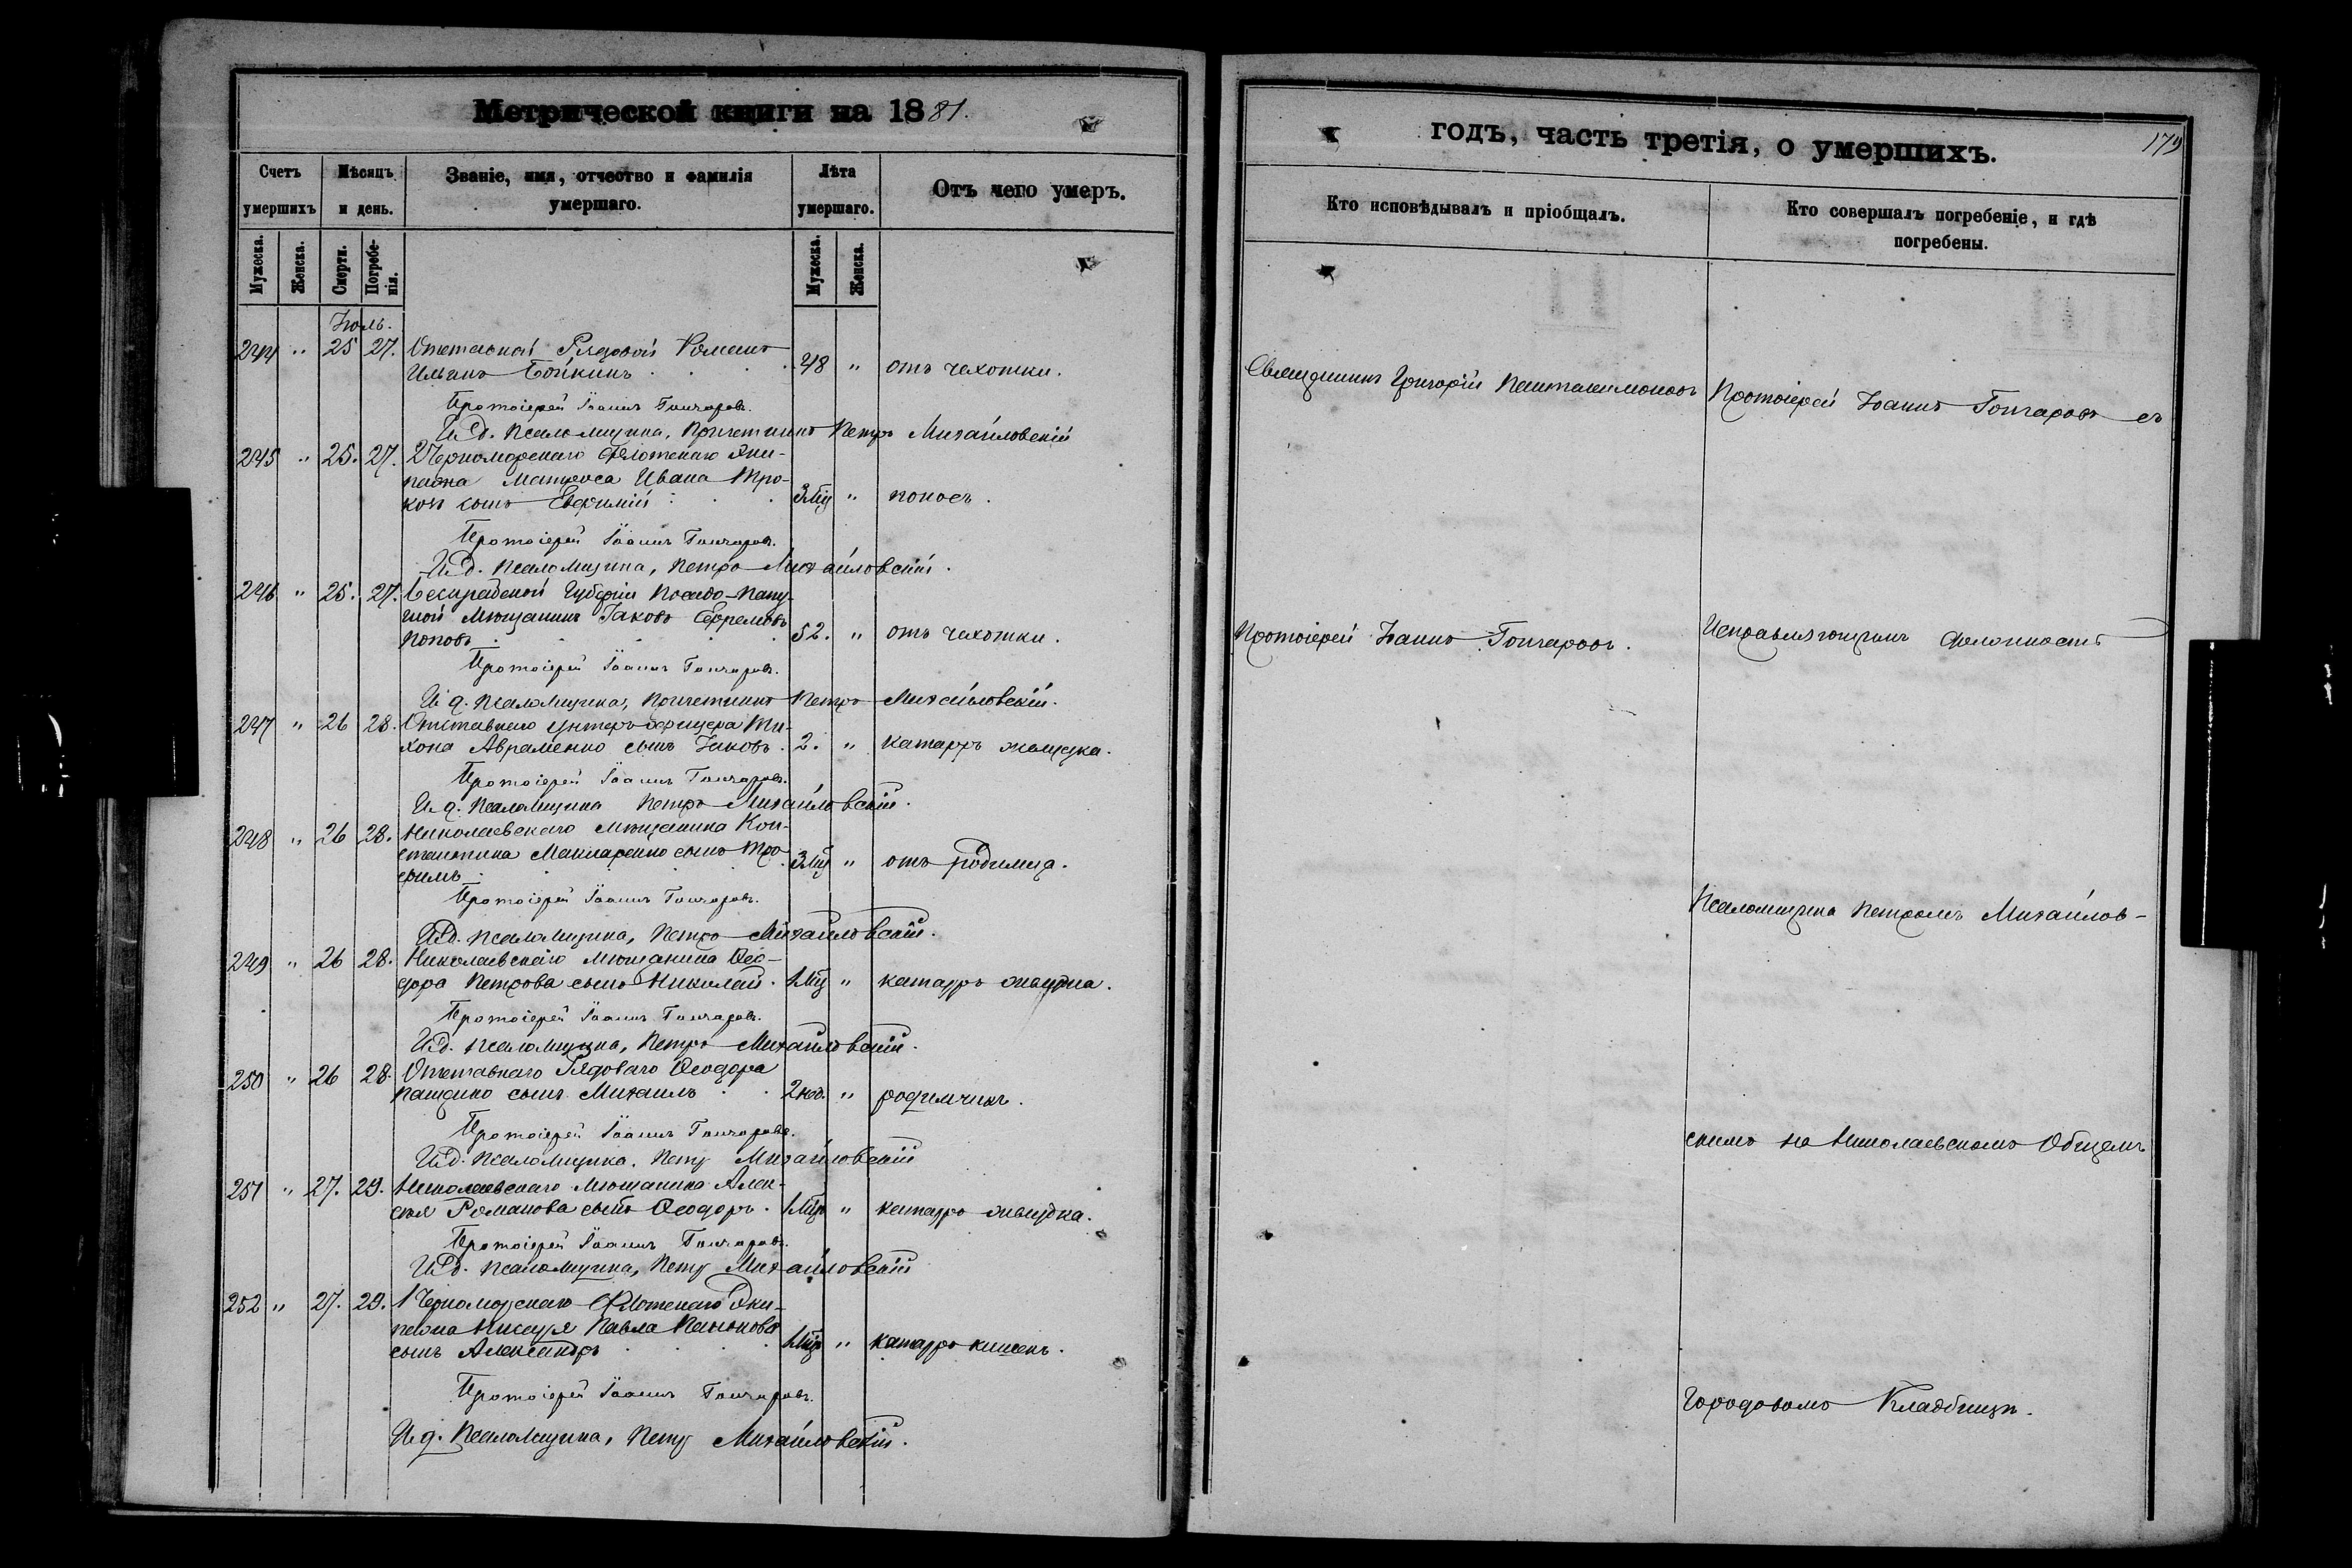 Метрической книги на 1881.
Счетъ умершихъ
Мѣсяцъ и день.
Званіе, имя, отчество и фамилія умершаго.
Лѣта умершаго.
Отъ чего умеръ.
Мужеска.
Женска.
Смерти.
Погребенія.
Мужеска.
Женска.
Іюль.
244 " 25 27. Отставной Рядовой Романъ
Ильинъ Бойкинъ 48 " отъ чахотки.
Протоіерей Іоаннъ Гончаровъ.
И. д. Псаломщика, Причетникъ Петръ Михайловскій
245 " 25. 27. 2 Черноморскаго Флотскаго Эки-
пажа Матроса Ивана
сынъ Евфимій 3 мц " поносъ.
Протоіерей Іоаннъ Гончаровъ.
И. д. Псаломщика, Петръ Михайловскій.
246 " 25. 27. Губерніи
Мѣщанинъ Іаковъ Ефремовъ
Поповъ 52. " отъ чахотки.
Протоіерей Іоаннъ Гончаровъ.
И. д. Псаломщика, Причетникъ Петръ Михайловскій.
247 " 26 28. Отставнаго унтеръ-офицера Ти-
хона Авраменко сынъ Іаковъ. 2. " катарръ желудка.
Протоіерей Іоаннъ Гончаровъ.
И. д. Псаломщика Петръ Михайловскій.
248 " 26 28. Николаевскаго мѣщанина Кон-
стантина Макаренко сынъ Тро-
фимъ 3 мц " отъ родимца.
Протоіерей Іоаннъ Гончаровъ.
И. д. Псаломщика, Петръ Михайловскій.
249 " 26 28. Николаевскаго мѣщанина Ѳео-
дора Петрова сынъ Николай. 1 мц " катарръ желудка.
Протоіерей Іоаннъ Гончаровъ.
И. д. Псаломщика, Петръ Михайловскій.
250 " 26 28. Отставнаго Рядоваго Ѳеодора
Пащенко сынъ Михаилъ 2 год. " родимчикъ.
Протоіерей Іоаннъ Гончаровъ.
И. д. Псаломщика, Петръ Михайловскій
251 " 27. 29. Николаевскаго мѣщанина Алек-
сѣя Романова сынъ Ѳеодоръ. 1 мц " катарръ желудка.
Протоіерей Іоаннъ Гончаровъ.
И. д. Псаломщика, Петръ Михайловскій
252 " 27. 29. 1 Черноморскаго Флотскаго Эки-
пажа Писаря Павла
сынъ Александръ 1 мц " катарръ кишекъ.
Протоіерей Іоаннъ Гончаровъ.
И. д. Псаломщика, Петръ Михайловскій.
годъ, часть третія, о умершихъ.
179
Кто исповѣдывалъ и пріобщалъ.
Кто совершалъ погребеніе, и гдѣ погребены.
Священникъ Григорій Пантелеимоновъ
Протоіерей Іоаннъ Гончаровъ съ
Протоіерей Іоаннъ Гончаровъ.
Исправляющимъ должность
Псаломщика Петромъ Михайлов-
скимъ на Николаевскомъ Общемъ
Городовомъ Кладбищѣ.